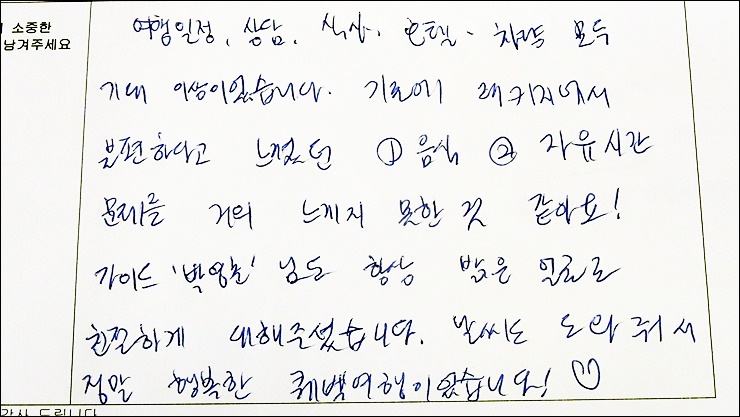 소중한
남겨주세요
여행일정, 상담, 식사, 호텔, 차량 모두
기대 이상이었습니다. 기존에 패키지에서
불편하다고 느꼈던 ① 음식 ② 자유시간
문제를 거의 느끼지 못한 것 같아요!
가이드 '박영호' 님도 항상 밝은 얼굴로
친절하게 대해주셨습니다. 날씨도 도와줘서
정말 행복한 퀘벡여행이었습니다! ☺
감사 드립니다